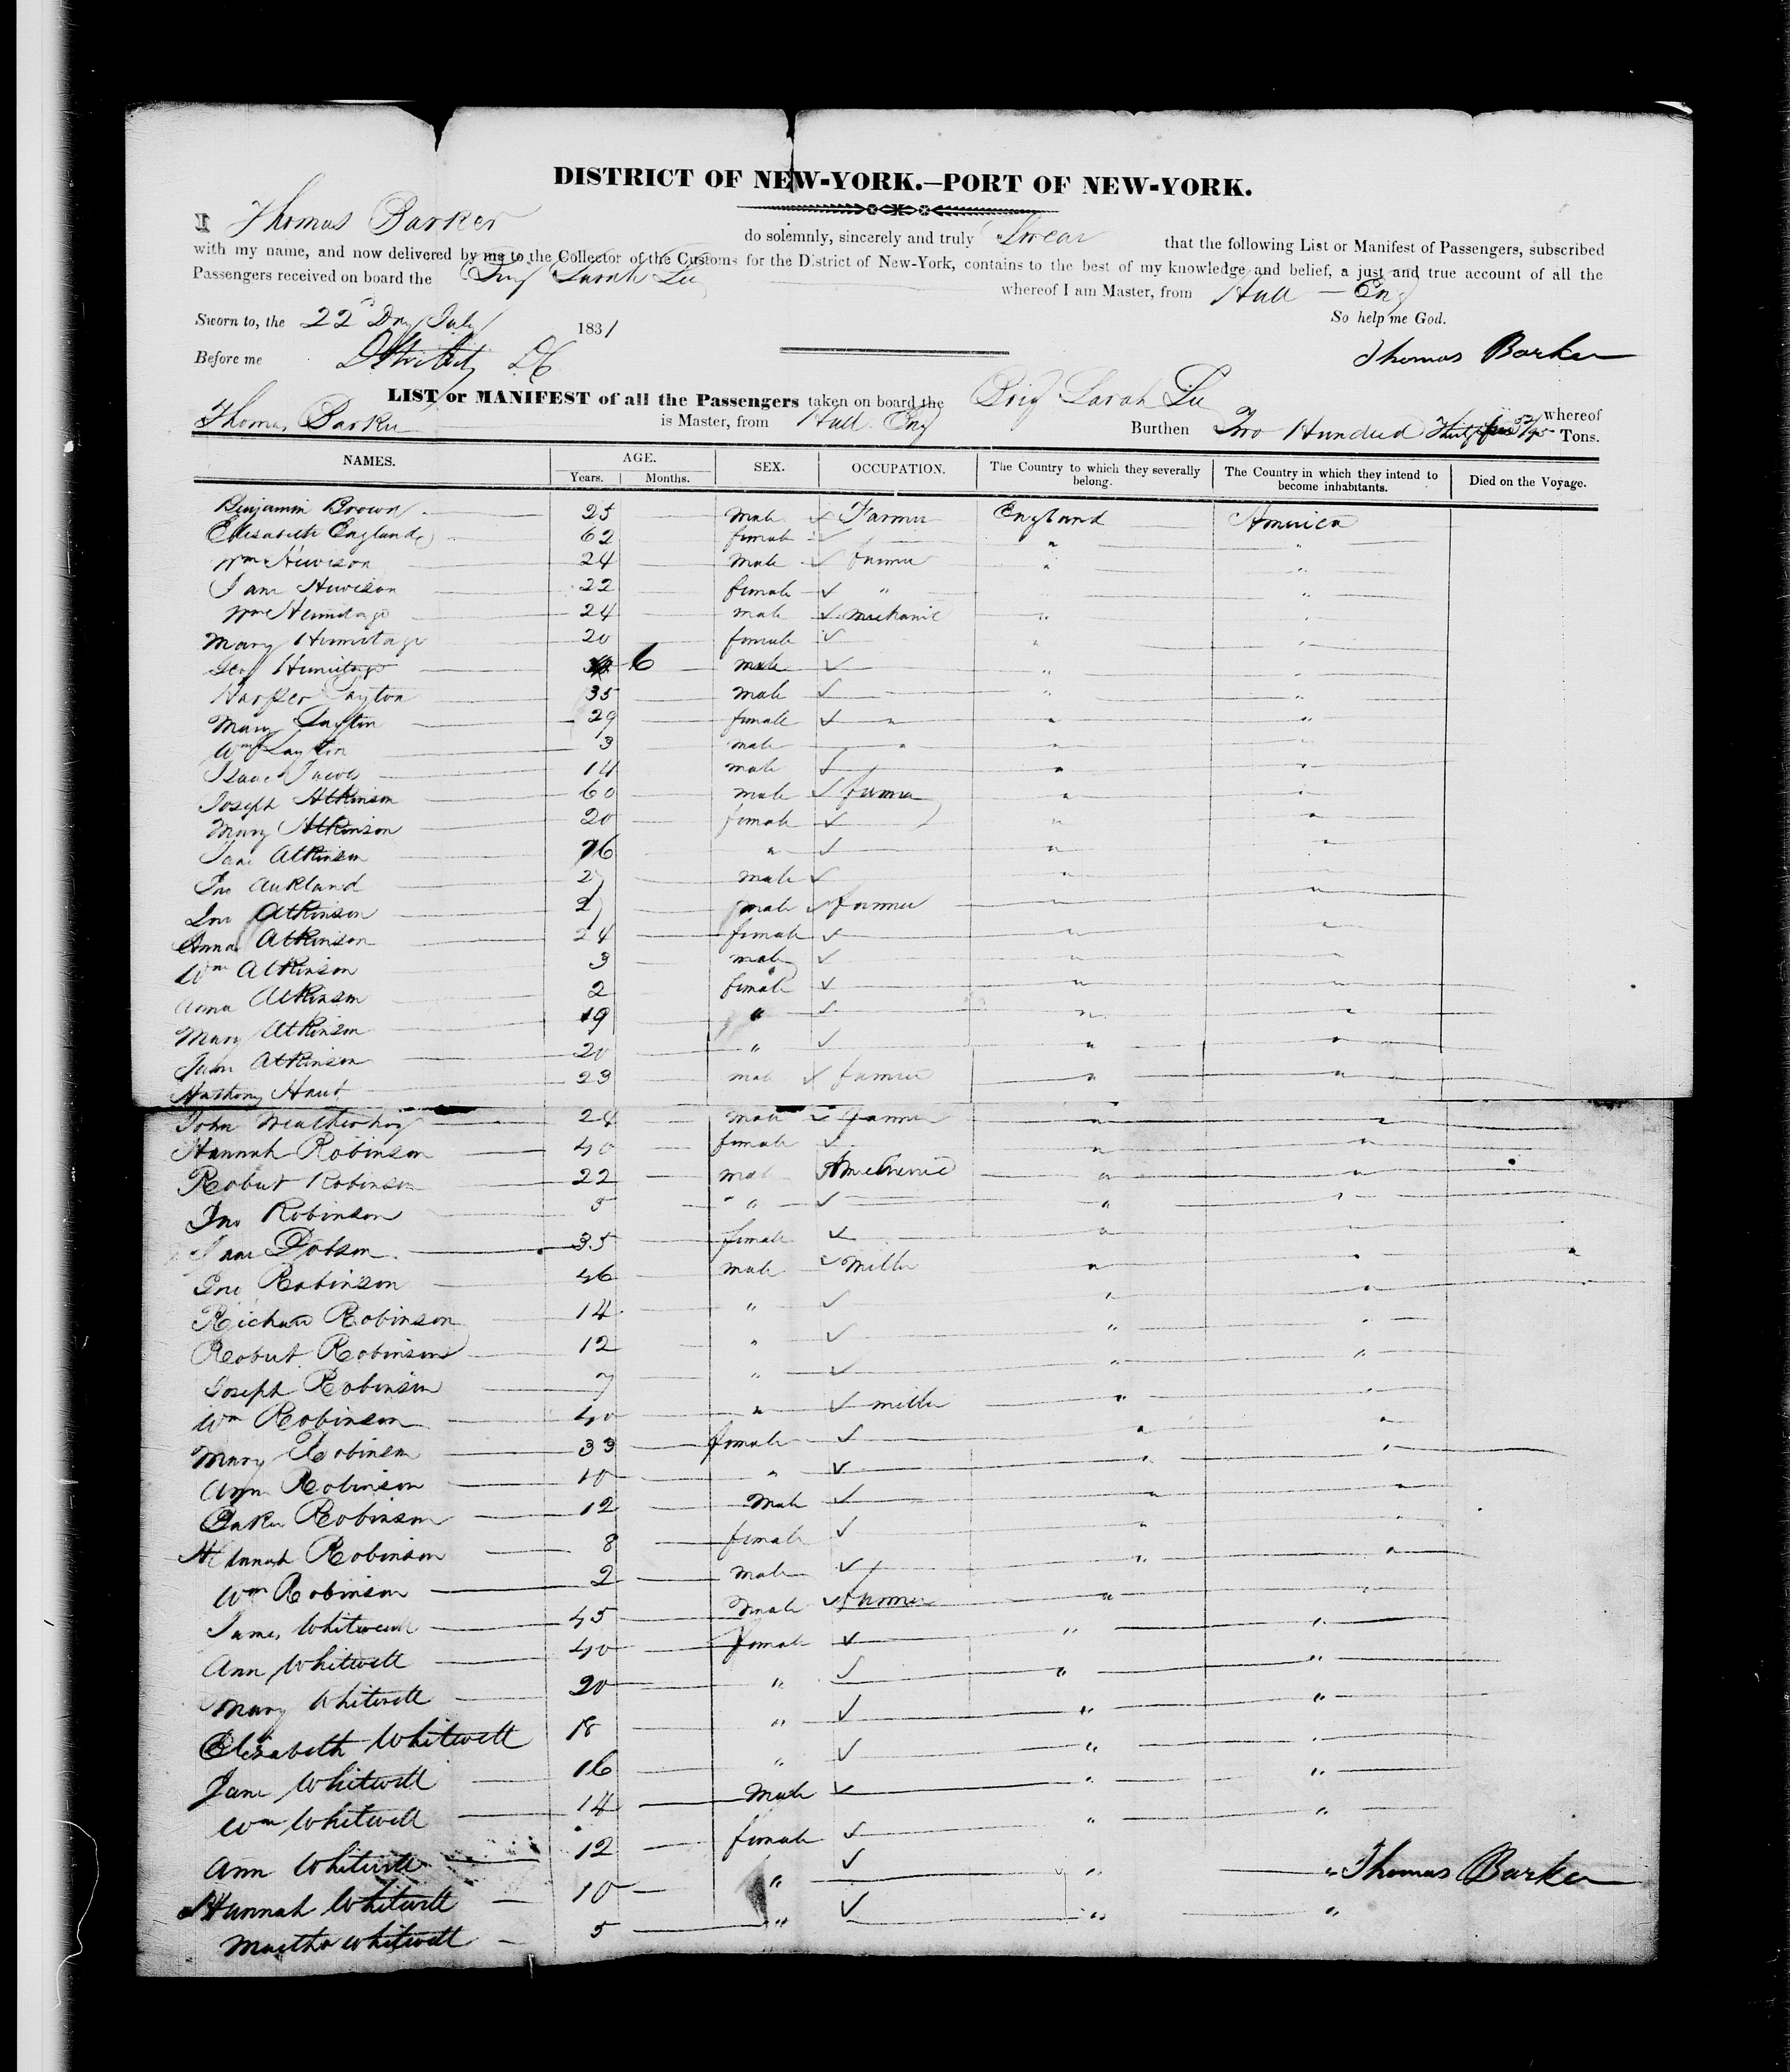 DISTRICT OF NEW-YORK.—PORT OF NEW-YORK.
I Thomas Barker do solemnly, sincerely and truly Swear that the following List or Manifest of Passengers, subscribed
with my name, and now delivered by me to the Collector of the Customs for the District of New-York, contains to the best of my knowledge and belief, a just and true account of all the
Passengers received on board the Brig Sarah Lee whereof I am Master, from Hull — Eng
So help me God.
Sworn to, the 22d Day July 1831
Before me
Thomas Barker
LIST or MANIFEST of all the Passengers taken on board the Brig Sarah Lee whereof
Thomas Barker is Master, from Hull Eng Burthen Two Hundred Tons.
NAMES. AGE. Years. Months. SEX. OCCUPATION. The Country to which they severally belong. The Country in which they intend to become inhabitants. Died on the Voyage.
Benjamin Brown 25 Male Farmer England America
Elisabeth England 62 female " "
Wm Hewison 24 Male farmer " "
Jane Hewison 22 female " "
Wm Hermitage 24 male mechanic " "
Mary Hermitage 20 female " "
Geo Hermitage 6 male " "
Layton 35 male " "
Mary Layton 29 female " " "
Wm Layton 3 male " " "
Isaac 14 male " "
Joseph Atkinson 60 male farmer " "
Mary Atkinson 20 female " "
Jane Atkinson 16 " " "
Jno Aukland 27 male " "
Jno Atkinson 27 male farmer " "
Anna Atkinson 24 female " "
Wm Atkinson 3 male " "
Anna Atkinson 2 female " "
Mary Atkinson 19 " " "
Jane Atkinson 20 " " "
Anthony 23 male farmer " "
John 24 male farmer " "
Hannah Robinson 40 female " "
Robert Robinson 22 male mechanic " "
Jno Robinson 5 " " "
Jane Dobson 35 female " "
Jno Robinson 46 male miller " "
Richard Robinson 14 " " "
Robert Robinson 12 " " "
Joseph Robinson 7 " " "
Wm Robinson 40 " miller " "
Mary Robinson 33 female " "
Ann Robinson 10 " " "
Robinson 12 Male " "
Hannah Robinson 8 female " "
Wm Robinson 2 male " "
James Whitwell 45 male farmer " "
Ann Whitwell 40 female " "
Mary Whitwell 20 " " "
Elizabeth Whitwell 18 " " "
Jane Whitwell 16 " " "
Wm Whitwell 14 Male " "
Ann Whitwell 12 female " "
Hannah Whitwell 10 " " "
Martha Whitwell 5 " " "
Thomas Barker